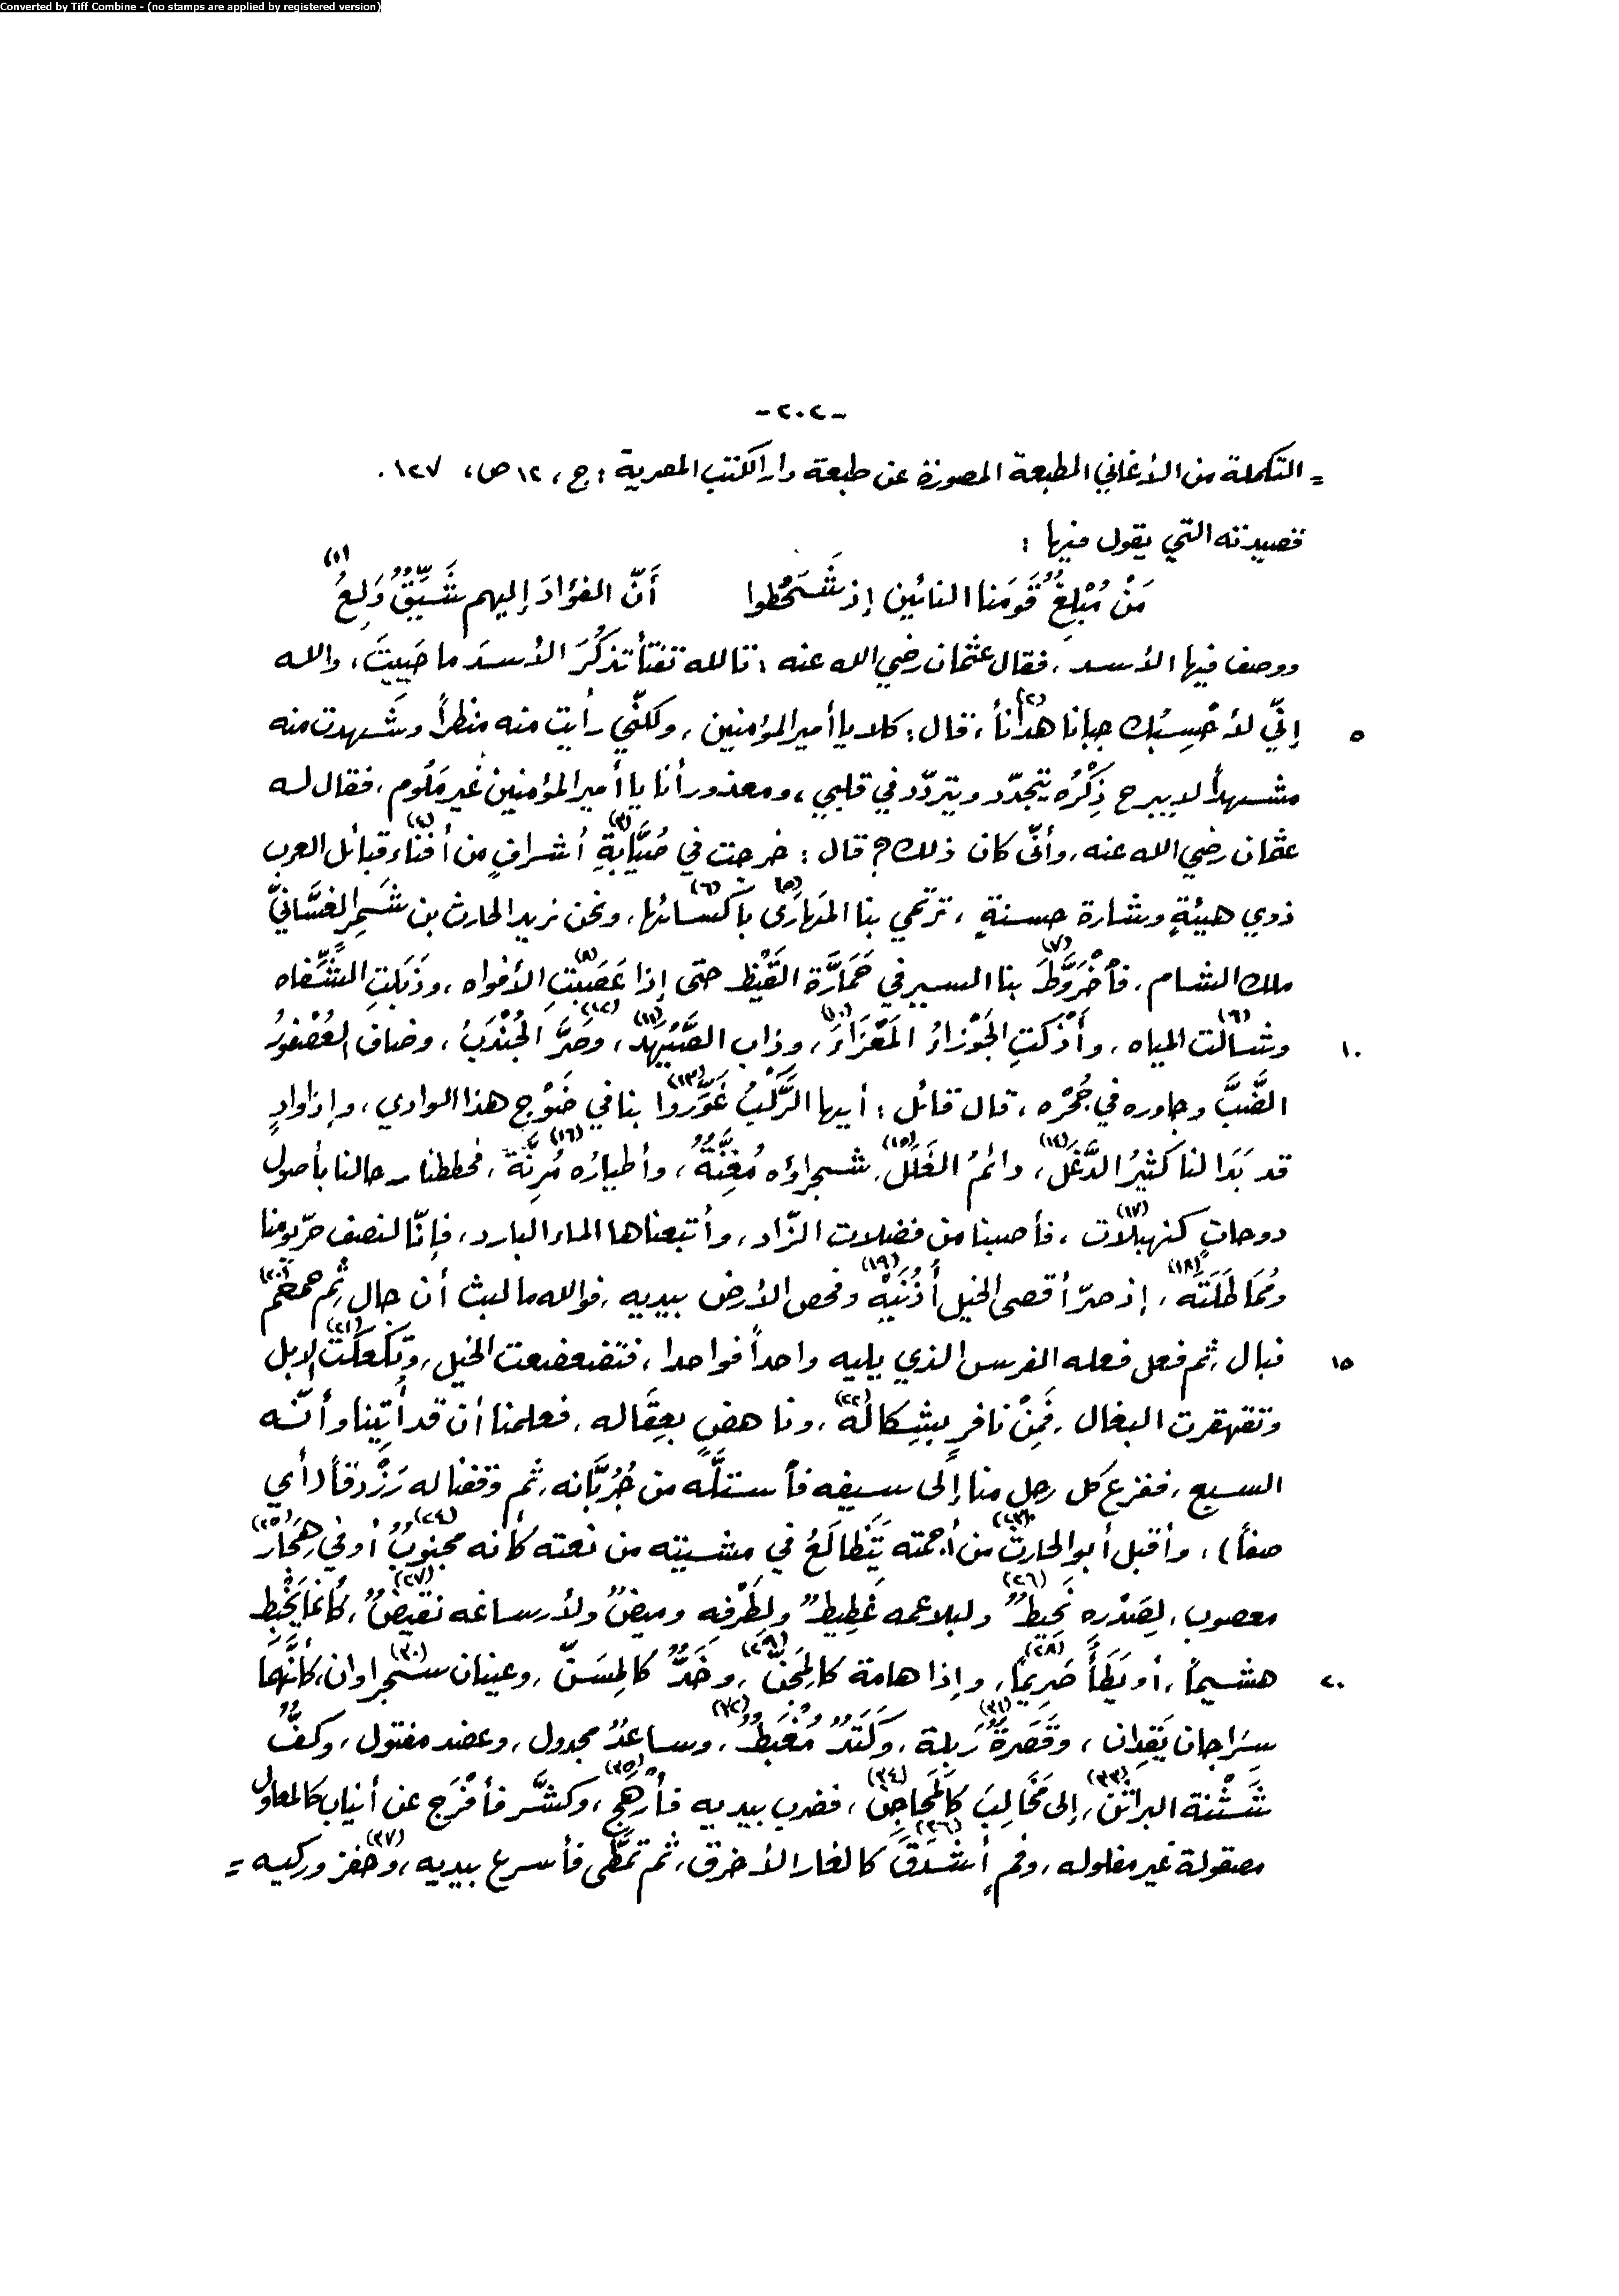 Converted by Tiff Combine - (no stamps are applied by registered version)
-٢٠٢-
= التكملة من الأغاني المطبعة المصورة عن طبعة دار الكتب المصرية : ج، ١٢ ص، ١٢٧ .
قصيدته التي يقول فيها :
مَنْ مُبْلِغٌ قَومَنا النائين إذ شَحَطُوا أَنَّ الفؤادَ إليهم شَيِّقٌ وَلِعُ (١)
ووصف فيها الأسد ، فقال عثمان رضي الله عنه : تالله تفتأ تذكُرَ الأسدَ ما حَييتَ ، والله
٥ إنّي لأحْسِبُك جبانا هدانا (٢) ، قال : كلا يا أمير المؤمنين ، ولكنّي رأيت منه منظراً وشهدت منه
مشهداً لا يبرح ذِكْرُه يتجدّد ويتردّد في قلبي ، ومعذور أنا يا أمير المؤمنين غير مَلُوم ، فقال له
عثمان رضي الله عنه ، وأنّى كان ذلك ؟ قال : خرجت في صُيَّابةِ (٣) أشرافٍ من أفناء (٤) قبائل العرب
ذوي هيئةٍ وشارة حسنةٍ ، ترتمي بنا المَهارَى (٥) بأكسائها (٦) ، ونحن نريد الحارث بن شَمِر الغسَّانيَّ
ملك الشام ، فأخْرَوَّطَ (٧) بنا السير في حَمَارَّة القَيْظ حتى إذا عَصَبتِ (٨) الأفواه ، وذَبَلتِ الشِّفاه
١٠ وشالت (٩) المياه ، وأَذْكَتِ الجَوْزاءُ المَعْزَاءَ (١٠) ، وذاب الصَّيْهد (١١) ، وصَرَّ الجُنْدَبُ (١٢) ، وضاف العُصْفورُ
الضَّبَّ وجاوره في جُحْرِه ، قال قائل : أيها الرَّكْبُ غَوِّروا (١٣) بنا في ضَوْج هذا الوادي ، وإذا وادٍ
قد بَدَا لنا كثيرُ الدَّغَل (١٤) ، دائمُ الغَلَل (١٥) ، شجراؤه مُغِنَّةٌ ، وأطيارُه مُرِنَّة (١٦) ، فحططنا رحالنا بأصول
دوحاتٍ كنهبلات (١٧) ، فأصبنا من فضلات الزّاد ، وأتبعناها الماء البارد ، فإنّا لنصف حرّ يومنا
ومُمَاطَلَتَه (١٨) ، إذ صرّ أقصى الخيل أُذُنَيْه (١٩) وفحص الأرض بيديه ، فوالله ما لبث أن جال ثم حمحم (٢٠)
١٥ فبال ، ثم فعل فعله الفرس الذي يليه واحداً فواحدا ، فتضعضعت الخيل ، وتكعكت (٢١) الإبل
وتقهقرت البغال ، فَمِنْ نافرٍ بشِكاله (٢٢) ، وناهضٍ بعِقَاله ، فعلمنا أن قد أُتِينا وأنّه
السبع ، ففزع كل رجل منا إلى سيفه فأستلَّه من جُرُبَّانه ، ثم وقفنا له رَزْدقاً (أي
صفاً) ، وأقبل أبو الحارث (٢٣) من أجمته يَتَظالَعُ في مشيته من نعته كأنه مجنوبٌ (٢٤) أو في هِجَار (٢٥)
معصوب ، لِصَدْره نَحِيطٌ (٢٦) ولبلاعمه غَطِيطٌ ولِطَرْفِه وميضٌ ولأرساغه نقيضٌ (٢٧) ، كأنما يَخْبِط
٢٠ هشيماً ، أو يَطَأُ صَرِيماً (٢٨) ، وإذا هامة كالمِجَنّ (٢٩) ، وخَدٌّ كالمِسَنّ ، وعينان سجراوان (٣٠) ، كأنَّهما
سِرَاجان يَقِدان ، وقَصَرَةٌ (٣١) رَبِلة ، وكَتَدٌ مُغْبَطٌ (٣٢) ، وساعدٌ مجدول ، وعضد مفتول ، وكفٌّ
شَثْنة البراثن (٣٣) ، إلى مَخَالِبَ كالمَحاجِن (٣٤) ، فضرب بيديه فأرهج (٣٥) ، وكشَّر فأفْرَج عن أنياب كالمعاول
مصقولة غير مفلوله ، وفمٍ أشدق (٣٦) كالغار الأخرق ، ثم تمطَّى فأسرع بيديه ، وحفز وركيه (٣٧) =